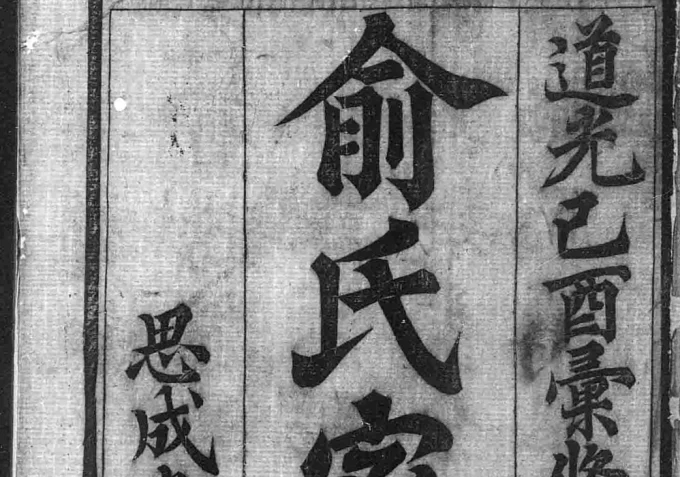 道光己酉彙
俞氏
思成